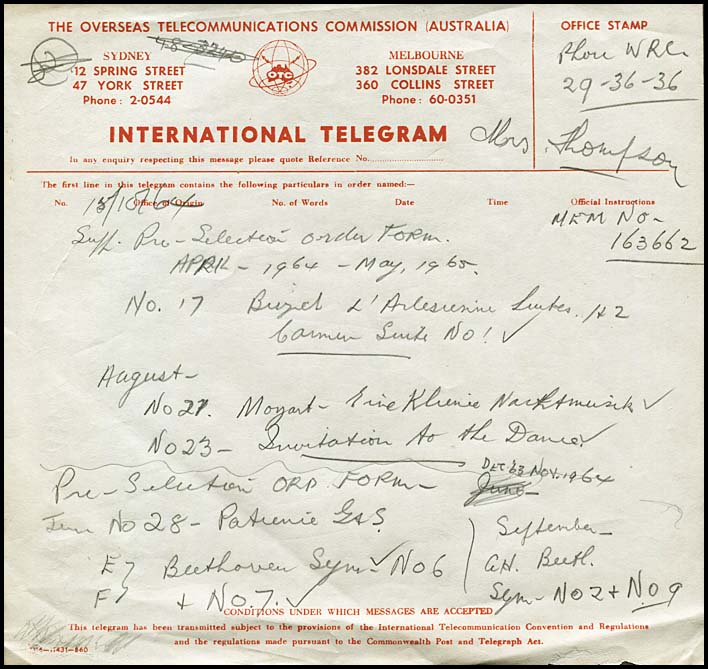 THE OVERSEAS TELECOMMUNICATIONS COMMISSION (AUSTRALIA)
OFFICE STAMP
SYDNEY
12 SPRING STREET
47 YORK STREET
Phone: 2-0544
OTC
MELBOURNE
382 LONSDALE STREET
360 COLLINS STREET
Phone: 60-0351
Phon WRC
29-36-36
INTERNATIONAL TELEGRAM
Mrs Thompson
In any enquiry respecting this message please quote Reference No.
The first line in this telegram contains the following particulars in order named:—
No. Office of Origin No. of Words Date Time Official Instructions
15/10/64
MEM NO-
163662
Supp. Pre-Selection Order Form.
APRIL - 1964 - May, 1965.
No. 17 Bizet L'Arlesienne Suites. 1+2
Carmen Suite No 1 ✓
August-
No 21. Mozart- Eine Kleine Nachtmusik ✓
No 23- Invitation to the Dance ✓
Pre-Selection ORD FORM- June-
DEC '63 NOV. 1964
June No 28- Patience G&S
E7 Beethoven Sym- ✓ No 6
F7 + No. 7. ✓
September-
G.H. Beeth.
Sym- No 2 + No 9
CONDITIONS UNDER WHICH MESSAGES ARE ACCEPTED
This telegram has been transmitted subject to the provisions of the International Telecommunication Convention and Regulations
and the regulations made pursuant to the Commonwealth Post and Telegraph Act.